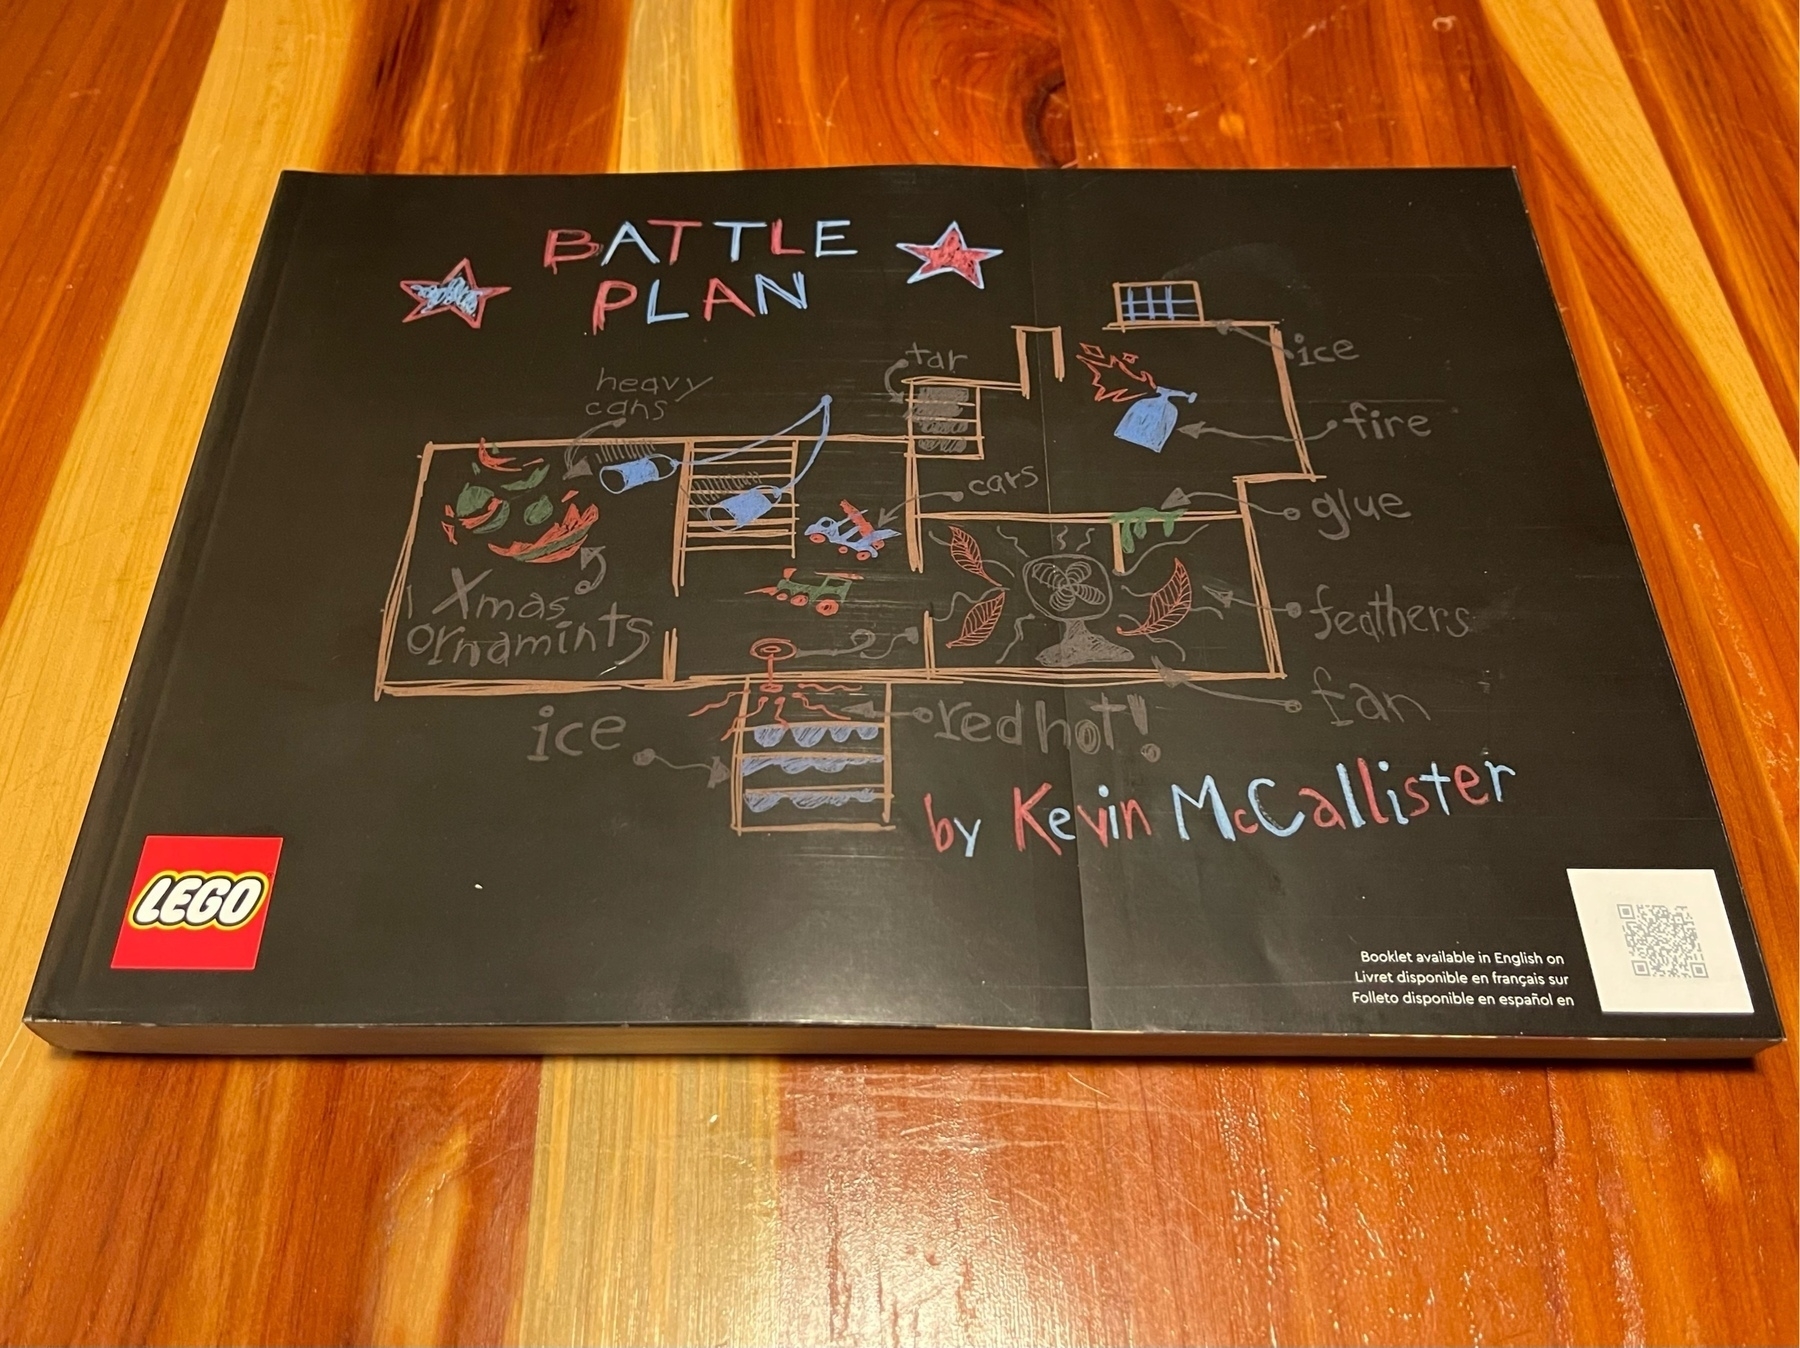 BATTLE
PLAN
heavy
cans
tar
ice
fire
cars
glue
Xmas
ornamints
feathers
fan
ice
red hot!
by Kevin McCallister
LEGO
Booklet available in English on
Livret disponible en français sur
Folleto disponible en español en